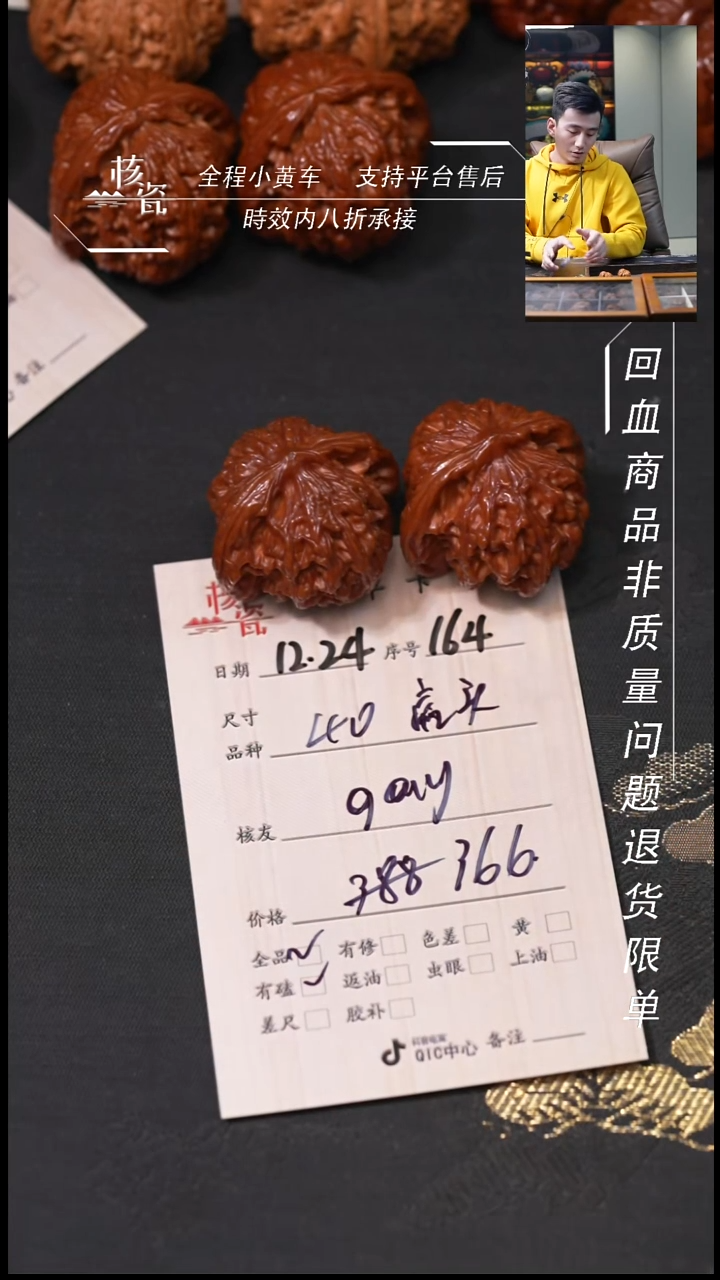 核瓷
全程小黄车 支持平台售后
時效内八折承接
回血商品非质量问题退货限单
备注
核瓷
日期 12.24 序号 164
尺寸
品种 40
核友 gavy
价格 388 366
全品 有修 色差 黄
有磕 返油 虫眼 上油
差尺 胶补
QIC中心 备注